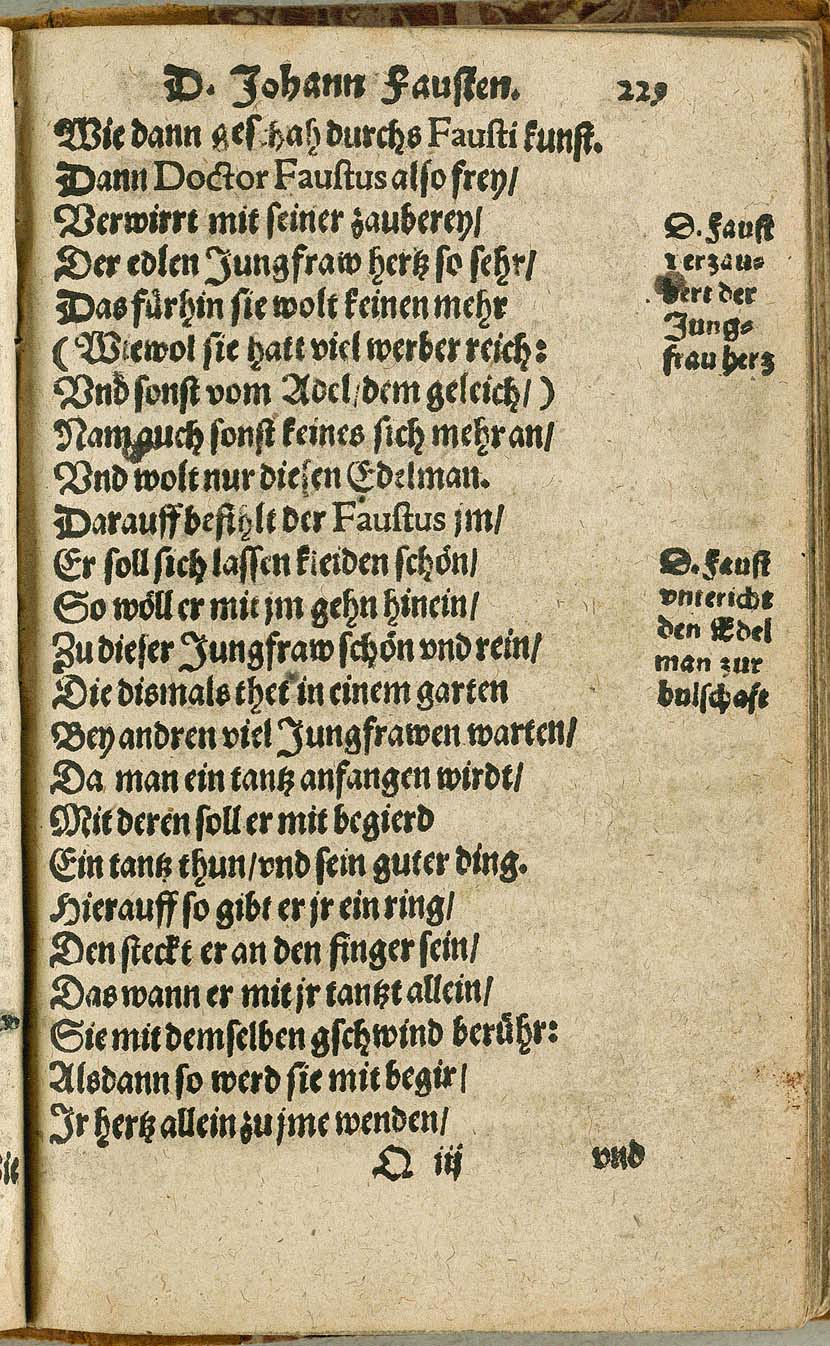 D. Johann Fausten. 229
Wie dann geschah durchs Fausti kunst.
Dann Doctor Faustus also frey/
Verwirrt mit seiner zauberey/
Der edlen Jungfraw hertz so sehr/
Das fürhin sie wolt keinen mehr
(Wiewol sie hatt viel werber reich:
Vnd sonst vom Adel/dem geleich/)
Nam auch sonst keines sich mehr an/
Vnd wolt nur diesen Edelman.
Darauff befihlt der Faustus jm/
Er soll sich lassen kleiden schön/
So wöll er mit jm gehn hinein/
Zu dieser Jungfraw schön vnd rein/
Die dismals thet in einem garten
Bey andren viel Jungfrawen warten/
Da man ein tantz anfangen wirdt/
Mit deren soll er mit begierd
Ein tantz thun/vnd sein guter ding.
Hierauff so gibt er jr ein ring/
Den steckt er an den finger sein/
Das wann er mit jr tantzt allein/
Sie mit demselben gschwind berühr:
Alsdann so werd sie mit begir/
Jr hertz allein zu jme wenden/
Q iij vnd
D. Faust
verzau-
bert der
Jung-
frau herz
D. Faust
vntericht
den Edel
man zur
bulschaft